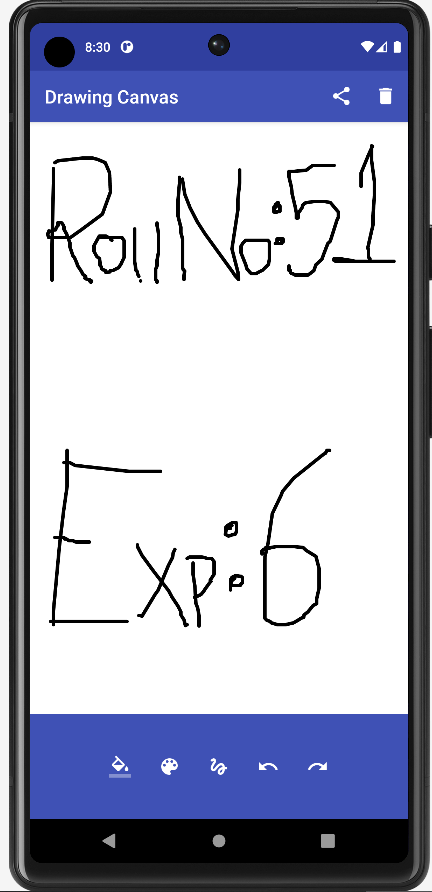 8:30
Drawing Canvas
Roll No:51
Exp:6